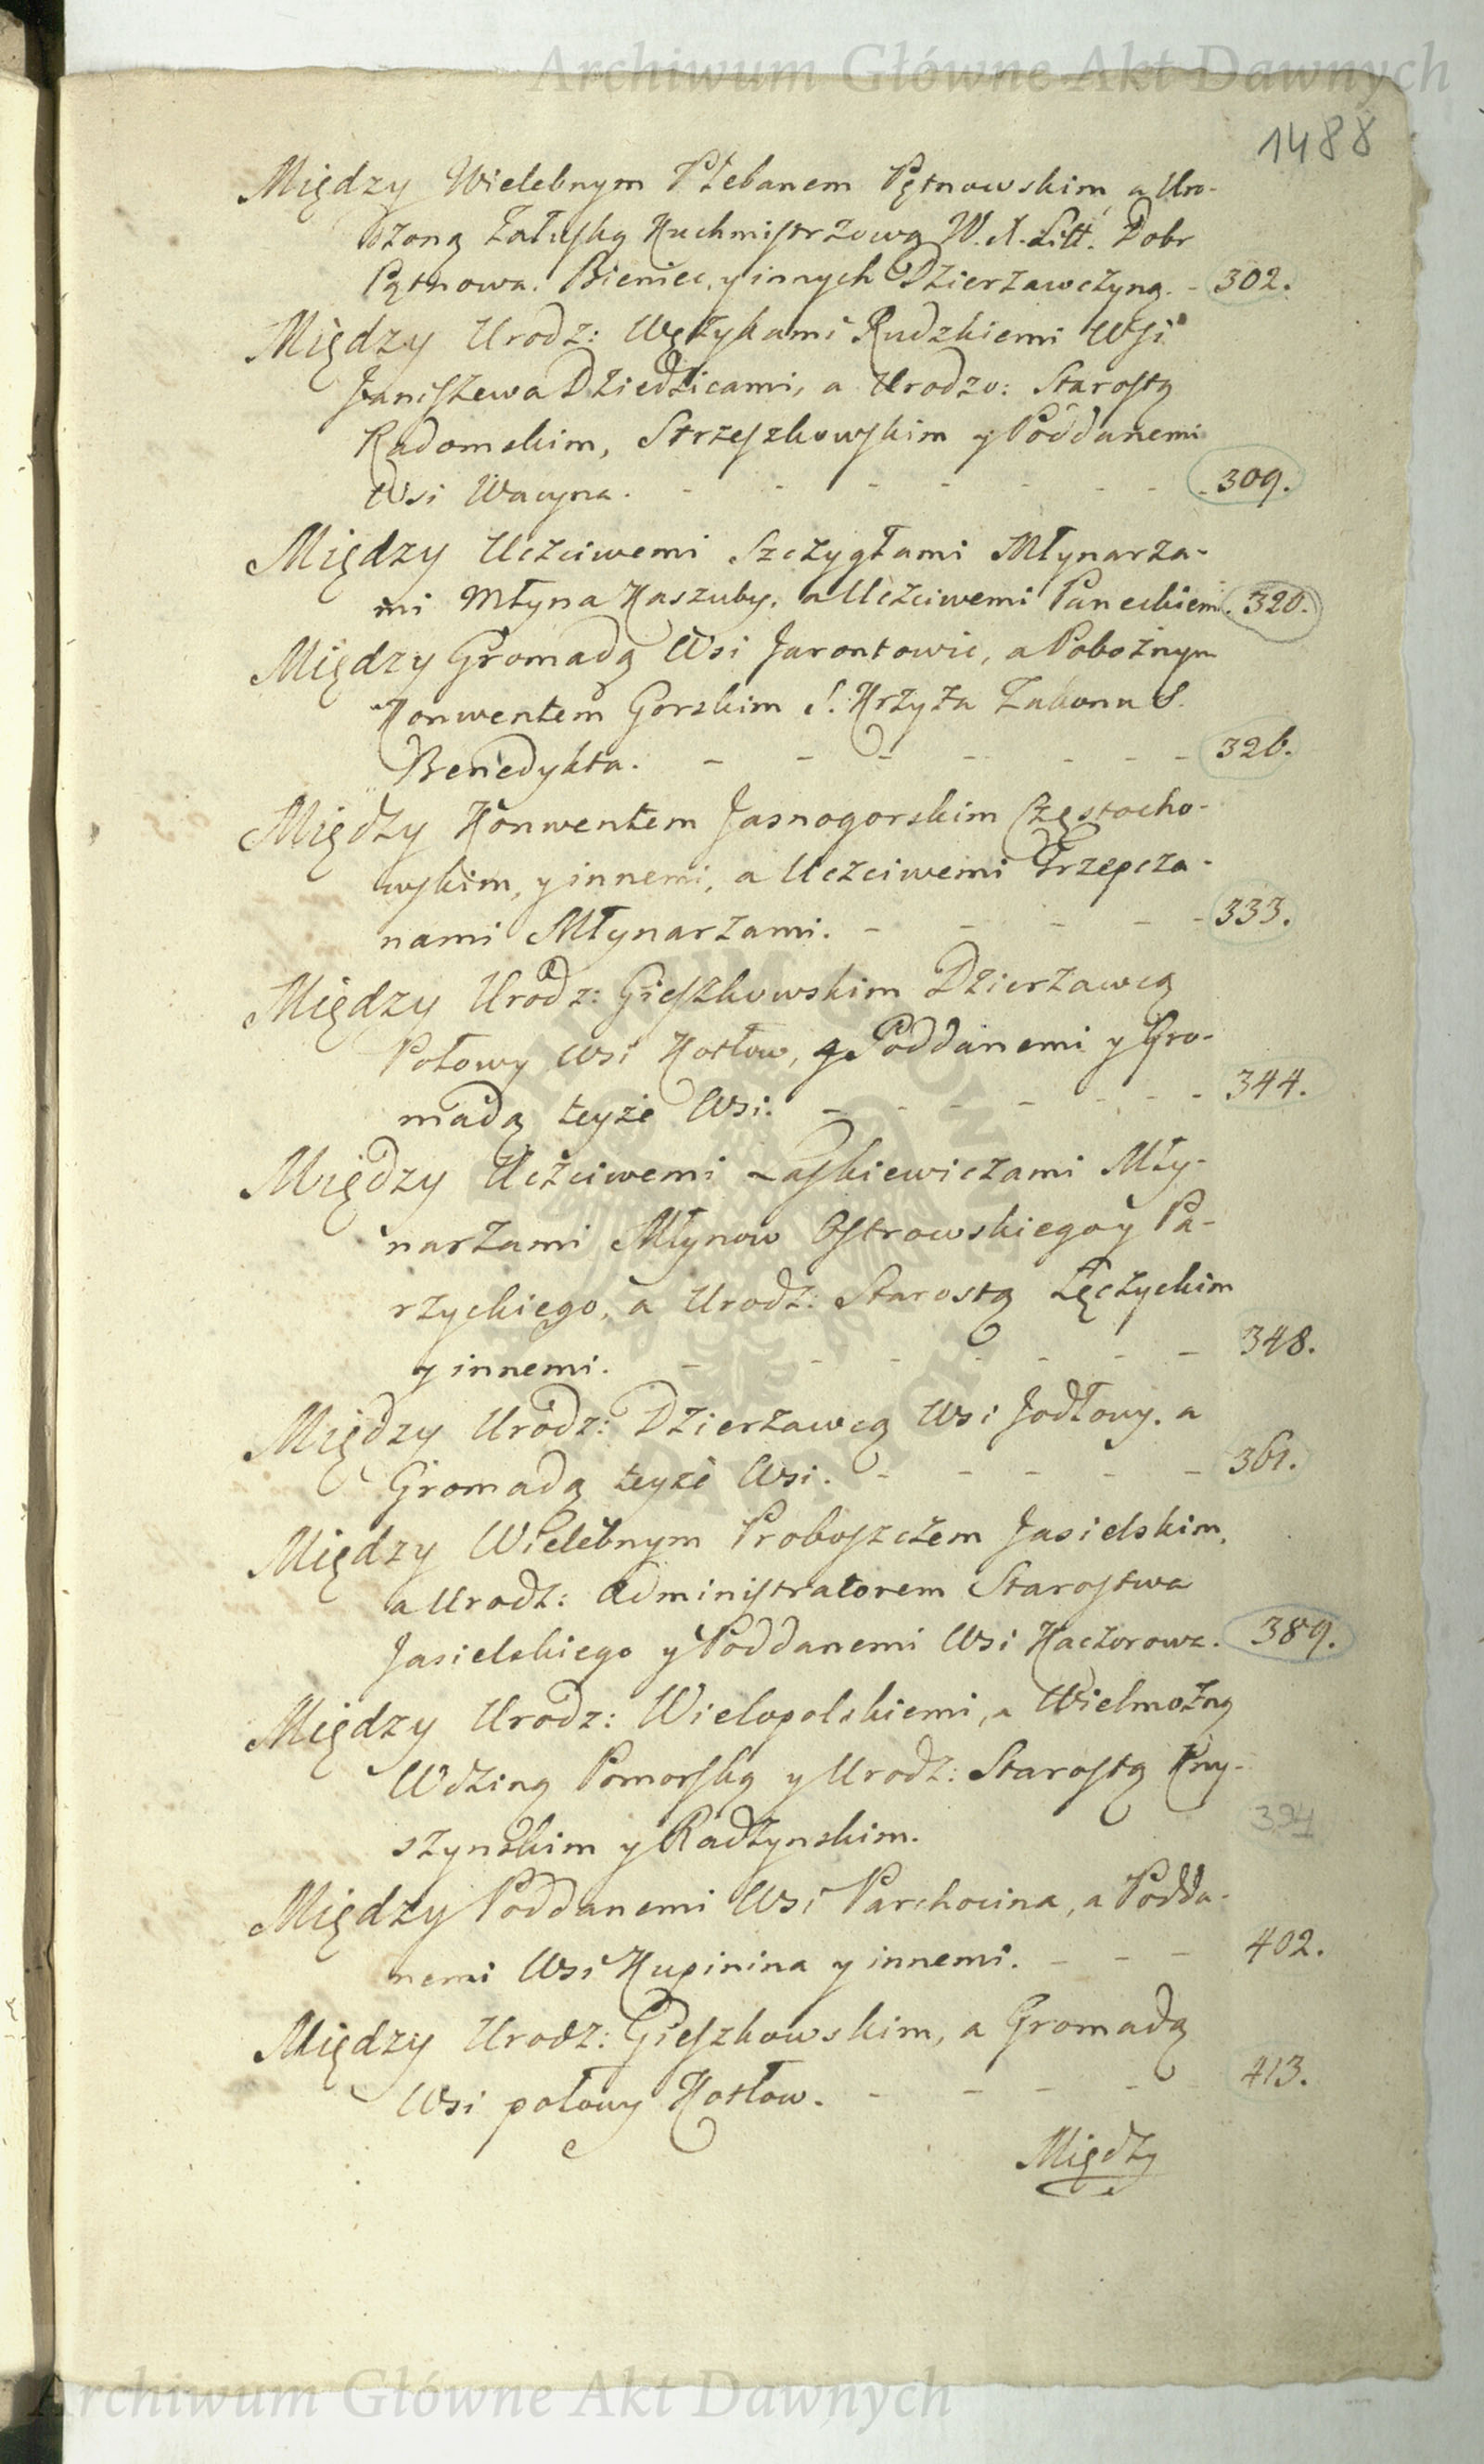 Archiwum Główne Akt Dawnych
1488
Między Wielebnym Plebanem Pętnowskim, a Uro-
dzoną Załuską Kuchmistrzową W. X. Litt. Dobr
Pątnowa. Bieniec, y innych Dzierzawczyną. - 302.
Między Urodz: Węzykami Rudzkiemi Wsi
Janiszewa Dziedzicami, a Urodzo: Starostą
Radomskim, Strzeszkowskim y Poddanemi
Wsi Wacyna. - - - - - - - 309.
Między Uczciwemi Szczygłami Młynarza-
mi Młyna Kaszuby, a Uczciwemi Paneckiemi. 320.
Między Gromadą Wsi Jarontowic, a Pobożnym
Konwentem Gorskim S. Krzyża Zakonu S.
Benedykta. - - - - - - - 326.
Między Konwentem Jasnogorskim Częstocho-
wskim, y innemi, a Uczciwemi Trzepcza-
nami Młynarzami. - - - - - 333.
Między Urodz: Gieszkowskim Dzierzawcą
Połowy Wsi Kotłow, a Poddanemi y Gro-
madą teyże Wsi. - - - - - - - 344.
Między Uczciwemi Laskiewiczami Mły-
narzami Młynow Ostrowskiego y Pa-
rzyckiego, a Urodz: Starostą Łęczyckim
y innemi. - - - - - - - 348.
Między Urodz: Dzierzawcą Wsi Jodłowy. a
Gromadą teyże Wsi. - - - - - 361.
Między Wielebnym Proboszczem Jasielskim,
a Urodz: Administratorem Starostwa
Jasielskiego y Poddanemi Wsi Kaczorowe. 389.
Między Urodz: Wielopolskiemi, a Wielmożną
Wdziną Pomorską y Urodz: Starostą Kny-
szynskim y Radzynskim. 394
Między Poddanemi Wsi Parchocina, a Podda-
nemi Wsi Kupinina y innemi. - - - 402.
Między Urodz: Gieszkowskim, a Gromadą
Wsi połowy Kotłow. - - - - 413.
Między
Archiwum Główne Akt Dawnych